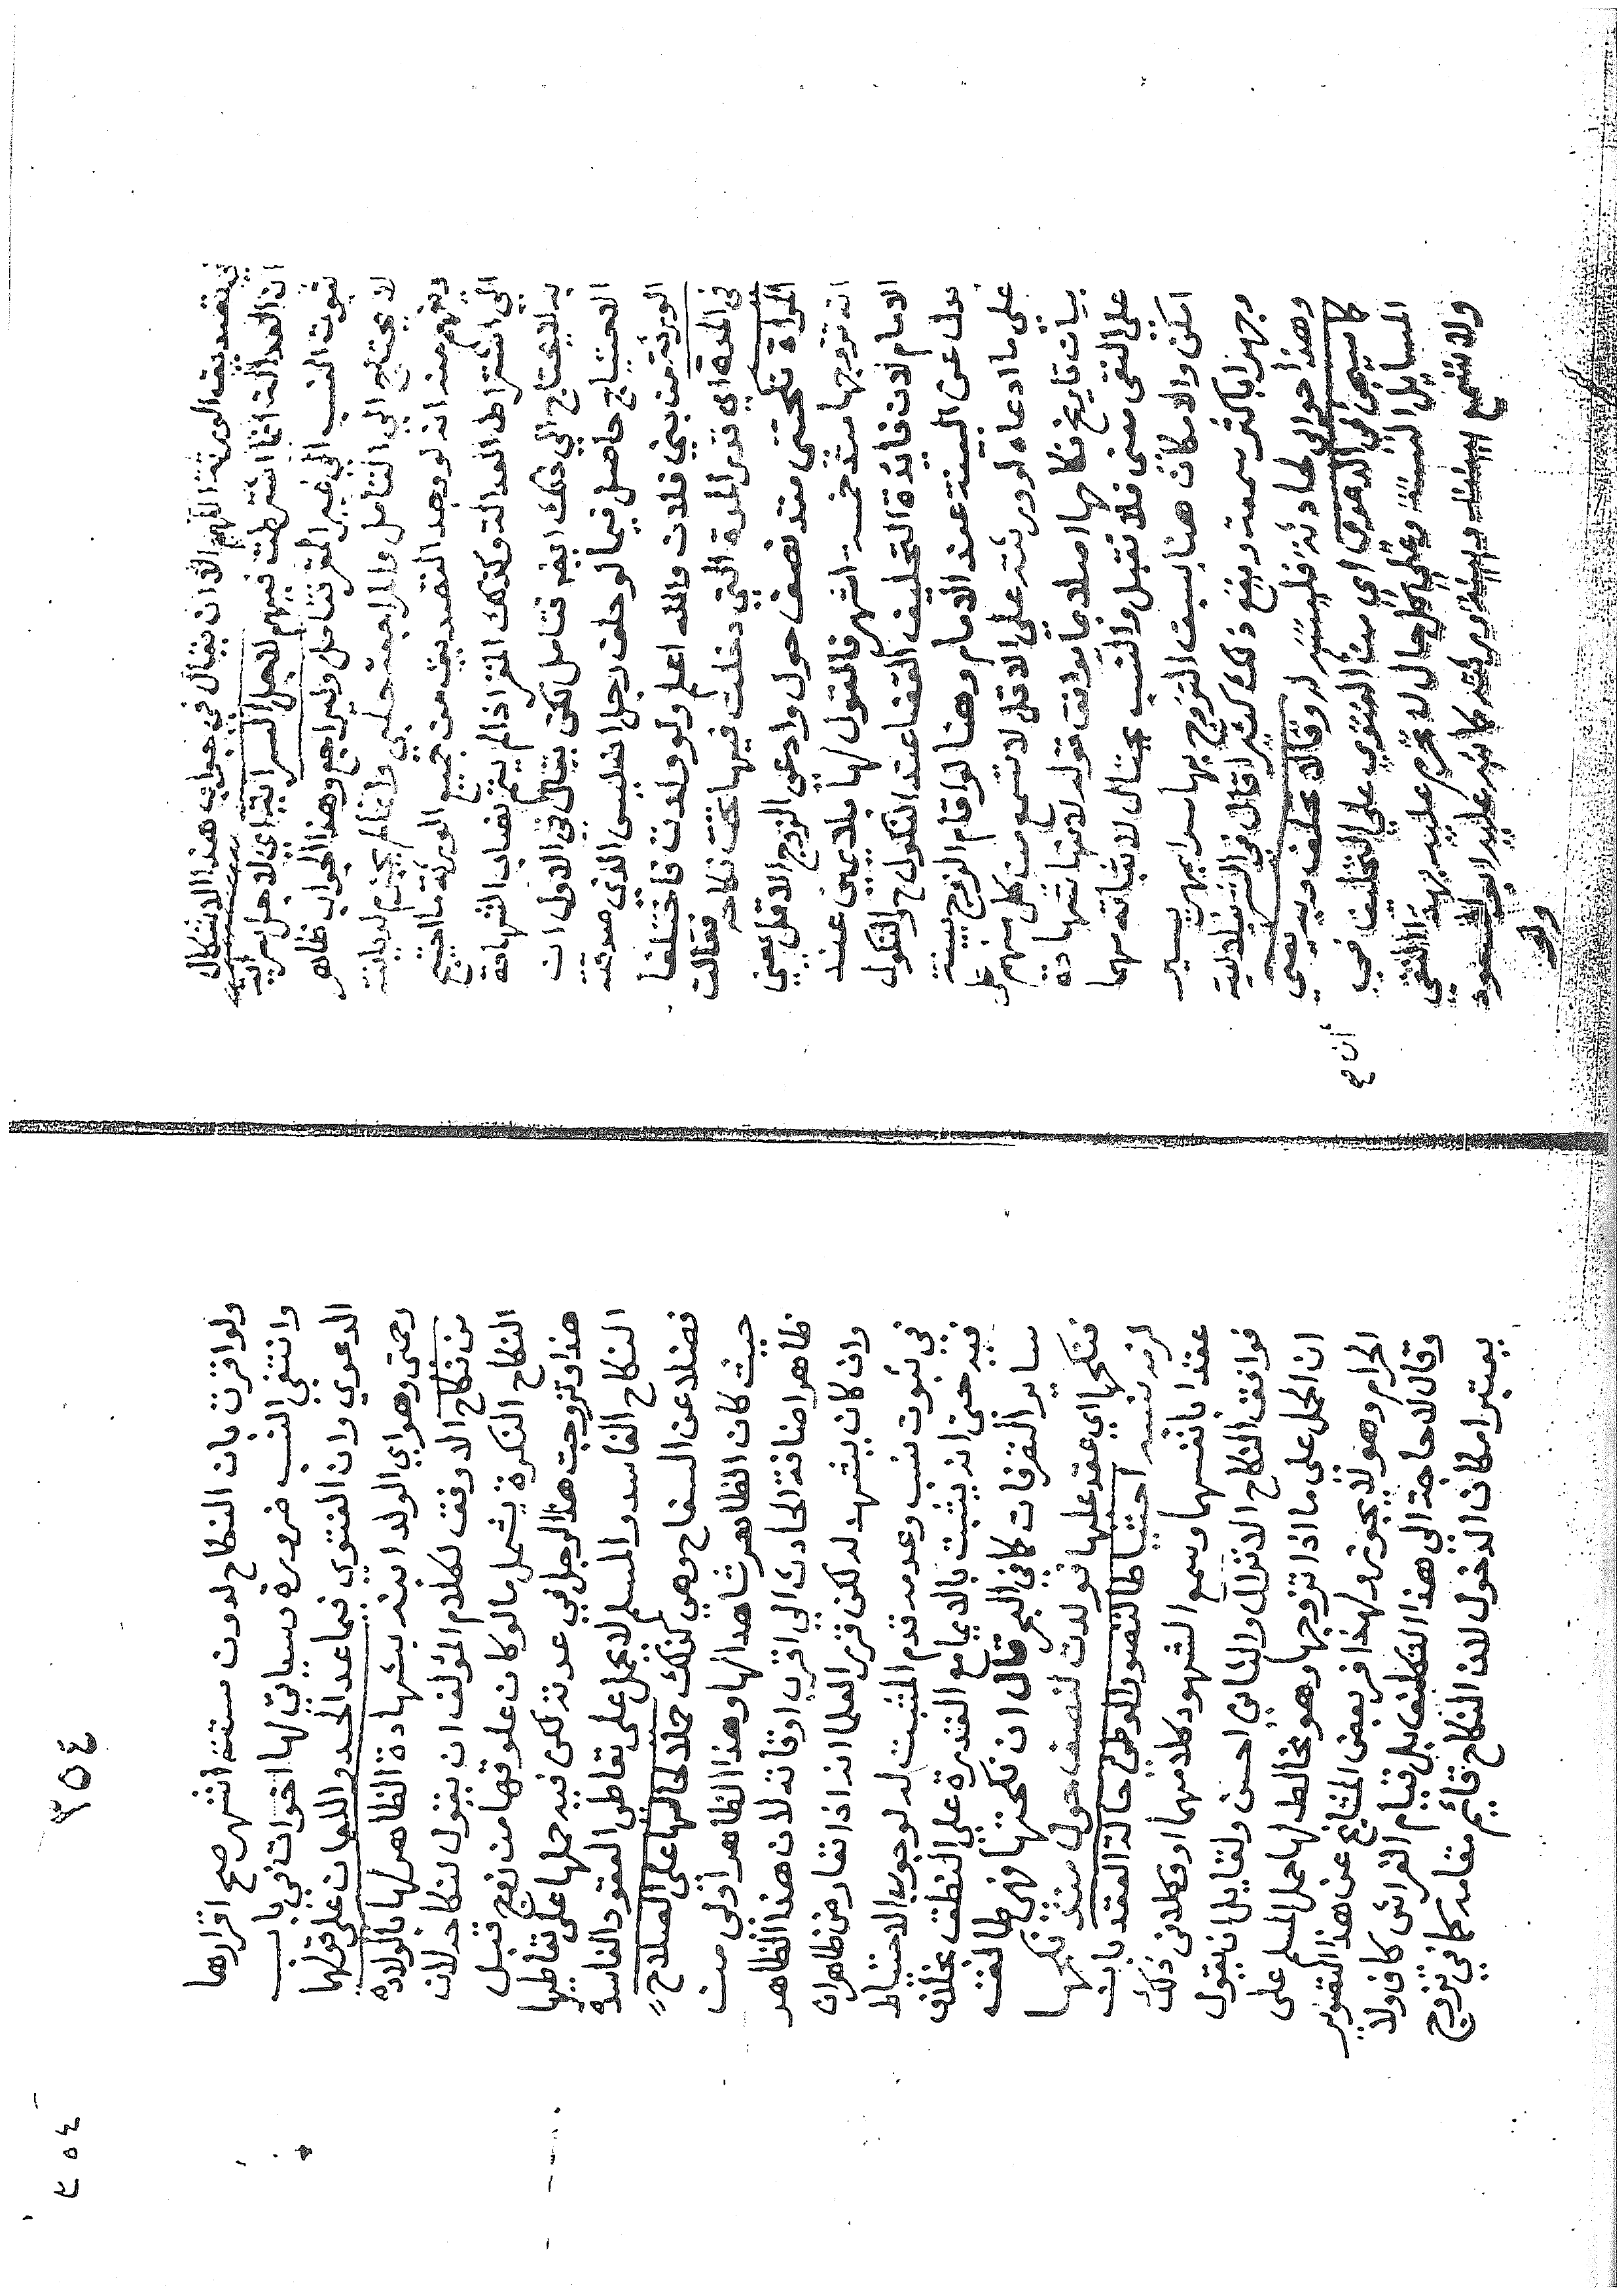 في تصديق الورثة اللهم الا ان يقال في جواب هذا الاشكال
ان العدالة انما اشترطت فيهم لاجل السراية اي لاجل سراية
ثبوت النسب الى غير المقر فتامل وليراجع وهذا الجواب ظاهر
لا يحتاج الي التامل والمراجعة حلبي وانما لم يجزم لديانته
ويفهم منه انه لو وجد التصديق من جميع الورثة ما احتيج
الي اشتراط العدالة وكذلك المقر اذا لم يتم نصاب الشهادة
به لا يحتاج الي ذلك ايضا فتامل لكن يقال في الاول ان
الاحتياج حاصل فيما لو خلف رجل اخا ليس الذي صدقته
الورثة من بني فلان والله اعلم ولو ولدت فاختلفا
في المدة اي قدر المدة التي دخلت فيها تحت نكاحه فقالت
المراة نكحتني منذ نصف حول وادعى الزوج الاقل يعني
انه تزوجها منذ خمسة اشهر فالقول لها بلا يمين عند
الامام لان فايدة التحليف القضا عند النكول ح والنكول
بدل عن البينة عند الامام وهنا لو اقام الزوج بينة
على ما ادعاه او ورثته على الاقل لا تسمع من كل منهم على
بيان تاريخ نكاحها اصلا بما يوافق قوله لانها شهادة
على النفى معنى فلا تقبل والنسب يحتال لاثباته مهما
امكن والامكان هنا بسبق التزوج بها سرا بمهر يسير
وجهرا باكثر سمعة ويقع ذلك كثيرا قال في الشرنبلالية
وهذا جوابي لحادثة فليتنبه له وقالا تحلف وبه يفتى
كما سيجي في الدعوى اي من ان الفتوى على التحليف في
المسايل الستة وعلى كل حال لا تحرم عليه بهذا النفي
ولا تسمع بينته وبينة ورثته كما نبه عليه ابو السعود
ولو
أن صح
٣٥٤
٣٥٤
ولو اقرت بان النكاح لدون ستة اشهر صح اقرارها
وانتفي النسب ضرورة سياتي لها اخوات في باب
الدعوي وان الفتوي فيما عدا الحد واللعان على قولهما
رحمتي وهو اي الولد ابنه بشهادة الظاهر لها بالولادة
من نكاح الاوفق لكلام المؤلف ان يقول لنكاحه لان
النكاح النكرة يشمل ما لو كان علوقها من زوج قبل
هذا وتزوجت هذا الرجل في عدته لكن فيه حملها على تعاطيها
النكاح الفاسد والمسلم لا يحمل على تعاطي العقود الفاسدة
فضلا عن السفاح وهي كذلك حملا لحالها على الصلاح
حيث كان الظاهر شاهدا لها وهذا الظاهر اولى من
ظاهر اضافة الحادث الي اقرب اوقاته لان هذا الظاهر
وان كان يشهد له لكن قرر العلما انه اذا تعارض ظاهران
في ثبوت نسب وعدمه قدم المثبت له لوجوب الاحتياط
فيه حتى انه يثبت بالايما مع القدرة على النطق بخلاف
ساير التصرفات كما في البحر قال ان نكحتها فهي طالق
فنكحها اي عقد عليها فولدت لنصف حول منذ نكحها
لزمه نسبه احتياطا لتصور الوطئ حالة العقد بان
عقدا بانفسهما وسمع الشهود كلامهما او وكلا في ذلك
فوافق النكاح الانزال والثاني احسن ولقايل ان يقول
ان الحمل على ما اذا تزوجها وهو مخالط لها حمل المسلم على
الحرام وهو لا يجوز ولهذا فر بعض المشايخ عن هذا التصوير
وقال لا حاجة الى هذا التكلف بل قيام الفراش كاف ولا
يعتبر امكان الدخول لان النكاح قايم مقامه كما في تزوج